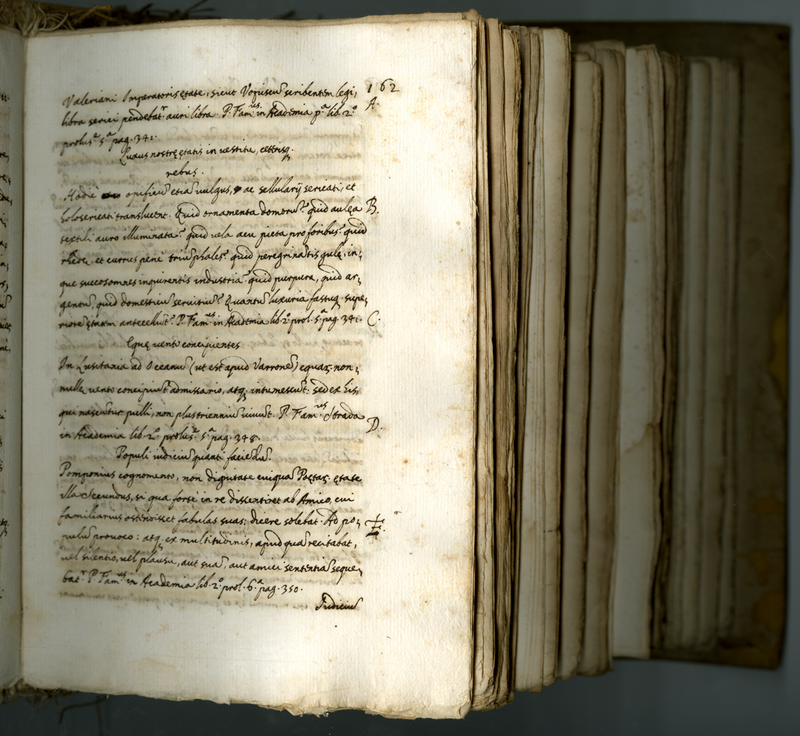 162
Valeriani Imperatoris ętate, sicut Vopiscũ scribentem legi,
A.
libra serici pendebat͛ auri libra. P. Fam.us in Academia pa. lib. 2o.
prolus.e 5a. pag. 341.
Luxus nostrę ętatis in vestitu, cęterisq.
rebus.
Hodie opificũ etiã vulgus, ac sellularij sericati, et
holosericati translucent. Quid ornamenta domorũ? quid aulęa
B.
textili auro illuminata? quid vela acu picta pro foribus? quid
rhedę, et currus penè triũphales? quid peregrinãtis gulę, in,
que succos omnes inquirentis industria? quid purpura, quid ar,
gentũ, quid domesticũ servitiũ? Quantũ luxuria fastuq. supe,
riorẽ ętatem antecellũt? P. Fam.us in Academia lib. 2o. prol. 5a. pag. 341.
C.
Equę vento concipientes
In Lusitania ad Oceanũ (ut est apud Varronẽ) equas non,
nullę vento concipiũt admissario, atq. intumescũt. sed ex his,
qui nascũtur pulli, non plus trienniũ vivũt. P. Fam.us Strada
D.
in Academia lib. 2o. prolus. 5a. pag. 348.
Populi iudiciũ quanti faciẽdũ.
Pomponius cognomento, non dignitate cuiquã Poetaȝ ętate
illa Secundus, si qua fortè in re dissentiret ab Amico, cui
familiarius ostẽdisset fabulas suas; dicere solebat. Ad po,
pulũ provoco: atq. ex multitudinis, apud quã recitabat,
vel silentio, vel plausu, aut suã, aut amici sententiã seque,
bat͛. P. Fam.us in Academia lib. 2o. prol. 6a. pag. 350.
Iudiciũ